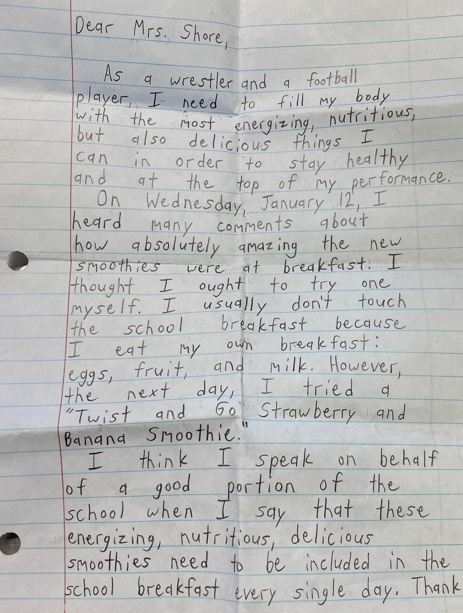 Dear Mrs. Shore,
As a wrestler and a football
player, I need to fill my body
with the most energizing, nutritious,
but also delicious things I
can in order to stay healthy
and at the top of my performance.
On Wednesday, January 12, I
heard many comments about
how absolutely amazing the new
smoothies were at breakfast. I
thought I ought to try one
myself. I usually don't touch
the school breakfast because
I eat my own breakfast:
eggs, fruit, and milk. However,
the next day, I tried a
"Twist and Go Strawberry and
Banana Smoothie."
I think I speak on behalf
of a good portion of the
school when I say that these
energizing, nutritious, delicious
smoothies need to be included in the
school breakfast every single day. Thank